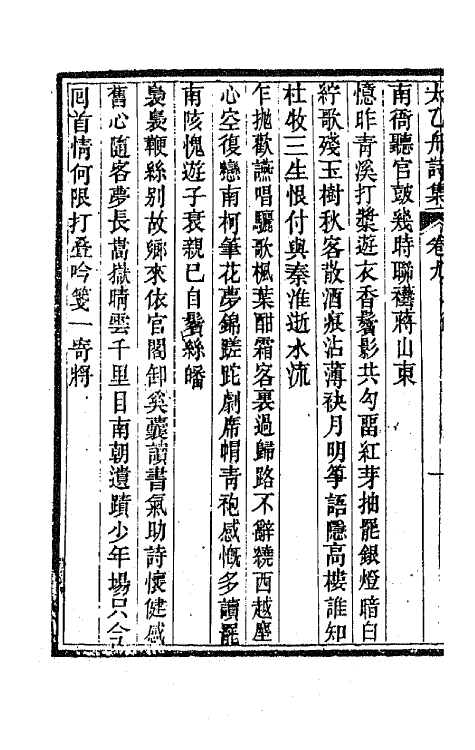 太乙舟詩集 卷九
南衙聽官鼓幾時聯襼蔣山東
憶昨青溪打槳遊衣香鬢影共勾留紅芽抽罷銀燈暗白
紵歌殘玉樹秋客散酒痕沾薄袂月明箏語隱高樓誰知
杜牧三生恨付與秦淮逝水流
乍拋歡讌唱驪歌楓葉酣霜客裏過歸路不辭繞西越塵
心空復戀南柯筆花夢錦蹉跎劇席帽青袍感慨多讀罷
南陔愧遊子衰親已自鬢絲皤
裊裊鞭絲别故鄉來依官閣卸奚囊讀書氣助詩懷健感
舊心隨客夢長嵩嶽晴雲千里目南朝遺蹟少年場只今
回首情何限打疊吟箋一寄將